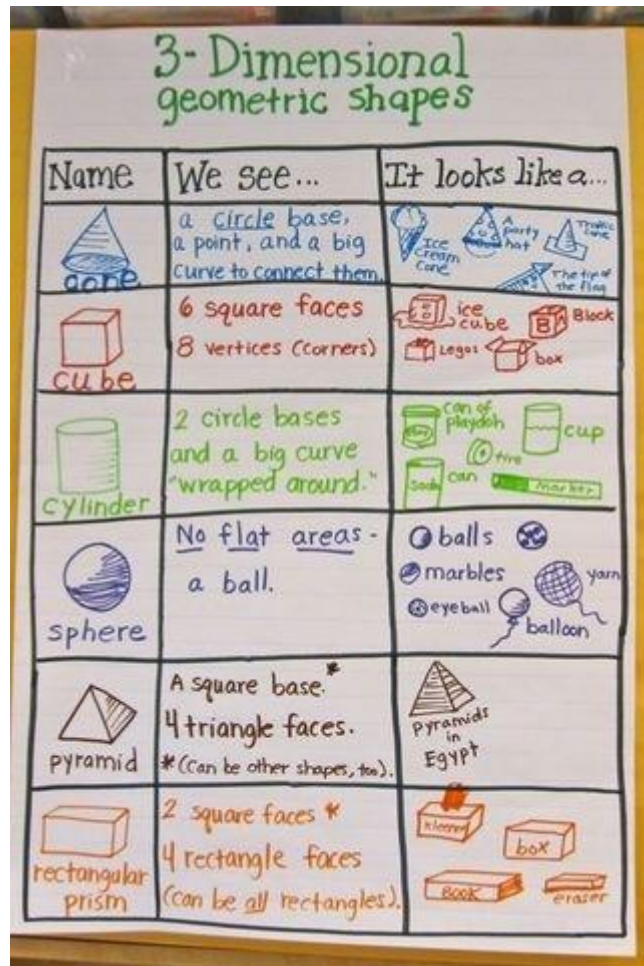 3-Dimensional
geometric shapes
Name
We see...
It looks like a...
cone
a circle base,
a point, and a big
curve to connect them.
Ice
Cream
Cone
A
party
hat
Traffic
Cone
The tip of
the flag
cube
6 square faces
8 vertices (corners)
ice
cube
B
Block
Legos
box
cylinder
2 circle bases
and a big curve
"wrapped around."
can of
playdoh
cup
tire
soda
can
marker
sphere
No flat areas-
a ball.
balls
marbles
yarn
eyeball
balloon
pyramid
A square base.*
4 triangle faces.
*(Can be other shapes, too).
Pyramids
in
Egypt
rectangular
prism
2 square faces *
4 rectangle faces
(can be all rectangles).
Kleenex
box
BOOK
eraser